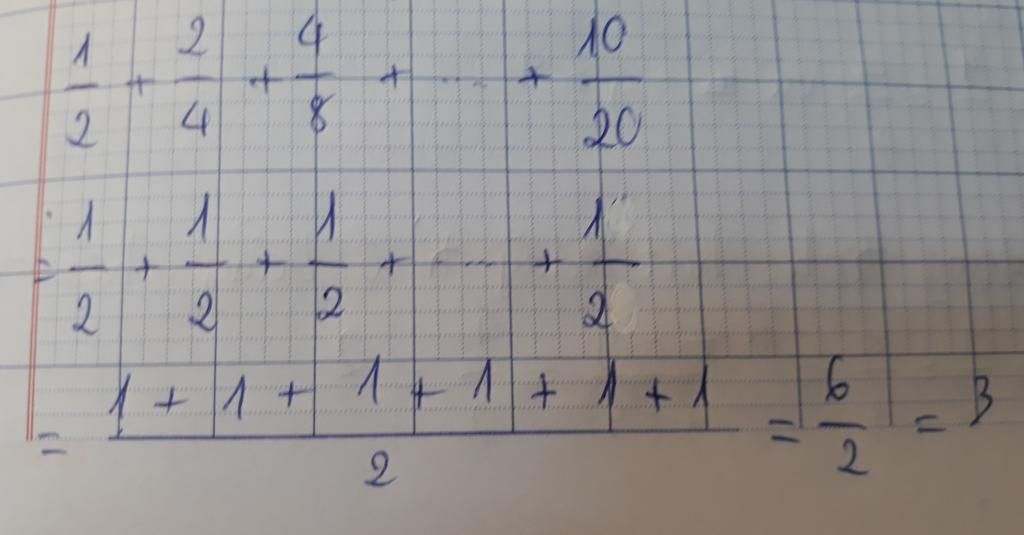 1/2 + 2/4 + 4/8 + ... + 10/20
= 1/2 + 1/2 + 1/2 + ... + 1/2
= (1 + 1 + 1 + 1 + 1 + 1)/2 = 6/2 = 3